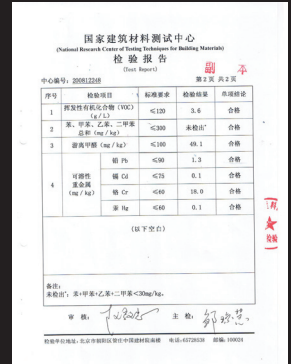 国家建筑材料测试中心
(National Research Center of Testing Techniques for Building Materials)
检 验 报 告
(Test Report)
副 本
中心编号：200812248 第 2 页 共 2 页
序号 检验项目 标准要求 检验结果 单项结论
1 挥发性有机化合物（VOC）（g/L） ≤120 3.6 合格
2 苯、甲苯、乙苯、二甲苯总和（mg/kg） ≤300 未检出* 合格
3 游离甲醛（mg/kg） ≤100 49.1 合格
4 可溶性重金属（mg/kg） 铅 Pb ≤90 1.3 合格
镉 Cd ≤75 0.1 合格
铬 Cr ≤60 18.0 合格
汞 Hg ≤60 0.1 合格
（以下空白）
备注：
未检出*：苯+甲苯+乙苯+二甲苯<30mg/kg。
审 核： 主 检：
检验单位地址：北京市朝阳区管庄中国建材院南楼 电话：65728538 邮编：100024
检验